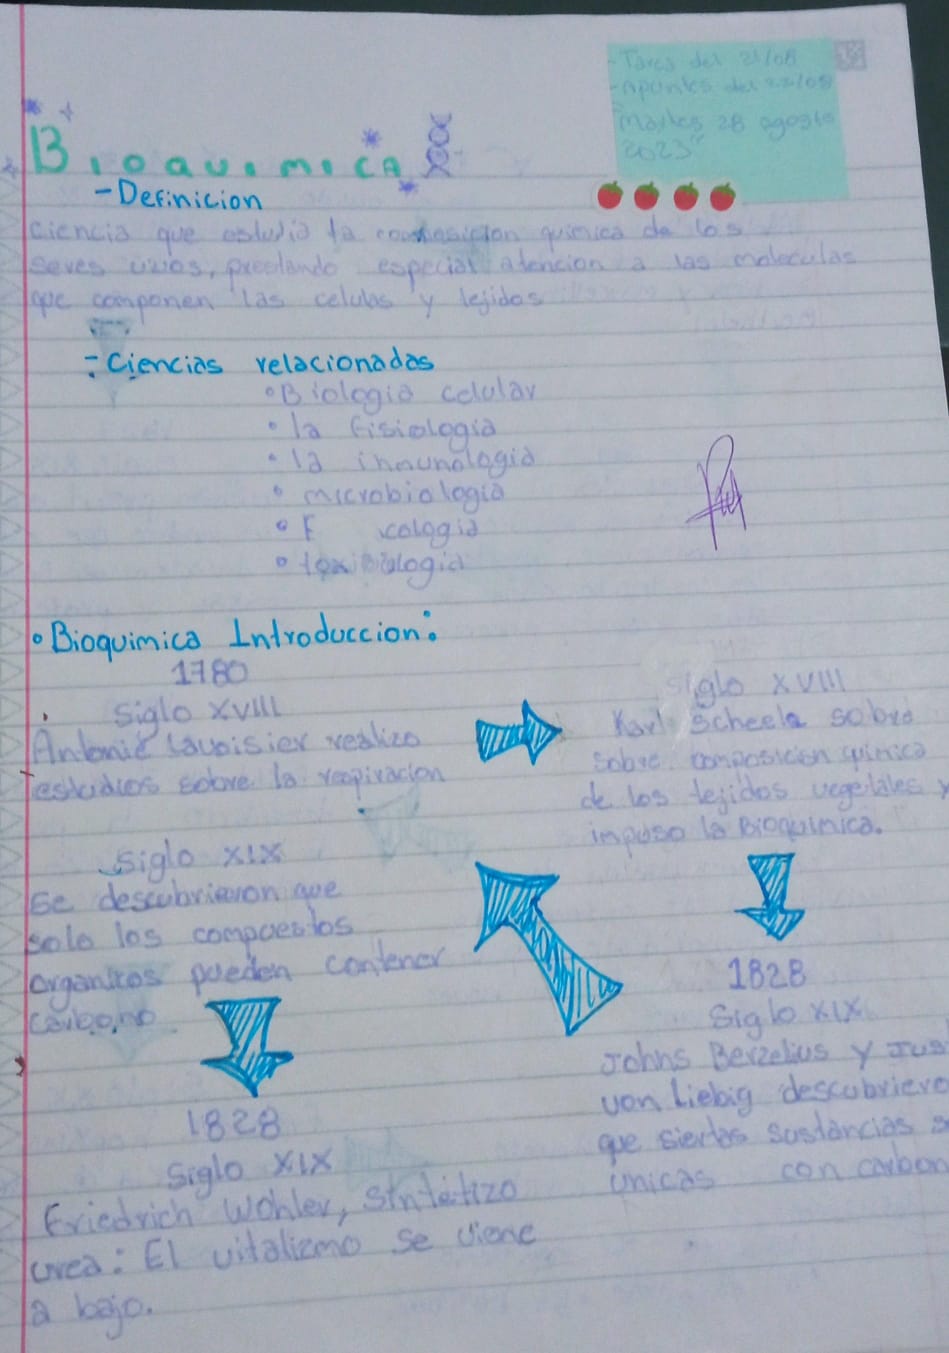 -Tarea del 21/08
-Apuntes del 22/08
"Martes 28 agosto
2023"
Bioquimica
-Definicion
ciencia que estudia la composicion quimica de los
seres vivos, prestando especial atencion a las moleculas
que componen las celulas y tejidos
-Ciencias relacionadas
•Biologia celular
•la fisiologia
•la inmunologia
•microbiologia
•F cologia
•
•Bioquimica Introduccion:
1780
Siglo XVIII
Antonie Lavoisier realizo
estudios sobre la respiracion
Siglo XVIII
Karl Scheele sobre
sobre composicion quimica
de los tejidos vegetales y
impuso la Bioquimica.
1828
Siglo XIX
Johns Berzelius y Jus
von Liebig descubriero
que siertas sustancias s
unicas con carbon
Siglo XIX
se descubrieron que
solo los compuestos
organicos pueden contener
carbono
1828
Siglo XIX
Friedrich Wohler, sintetizo
urea: El vitalizmo se viene
a bajo.